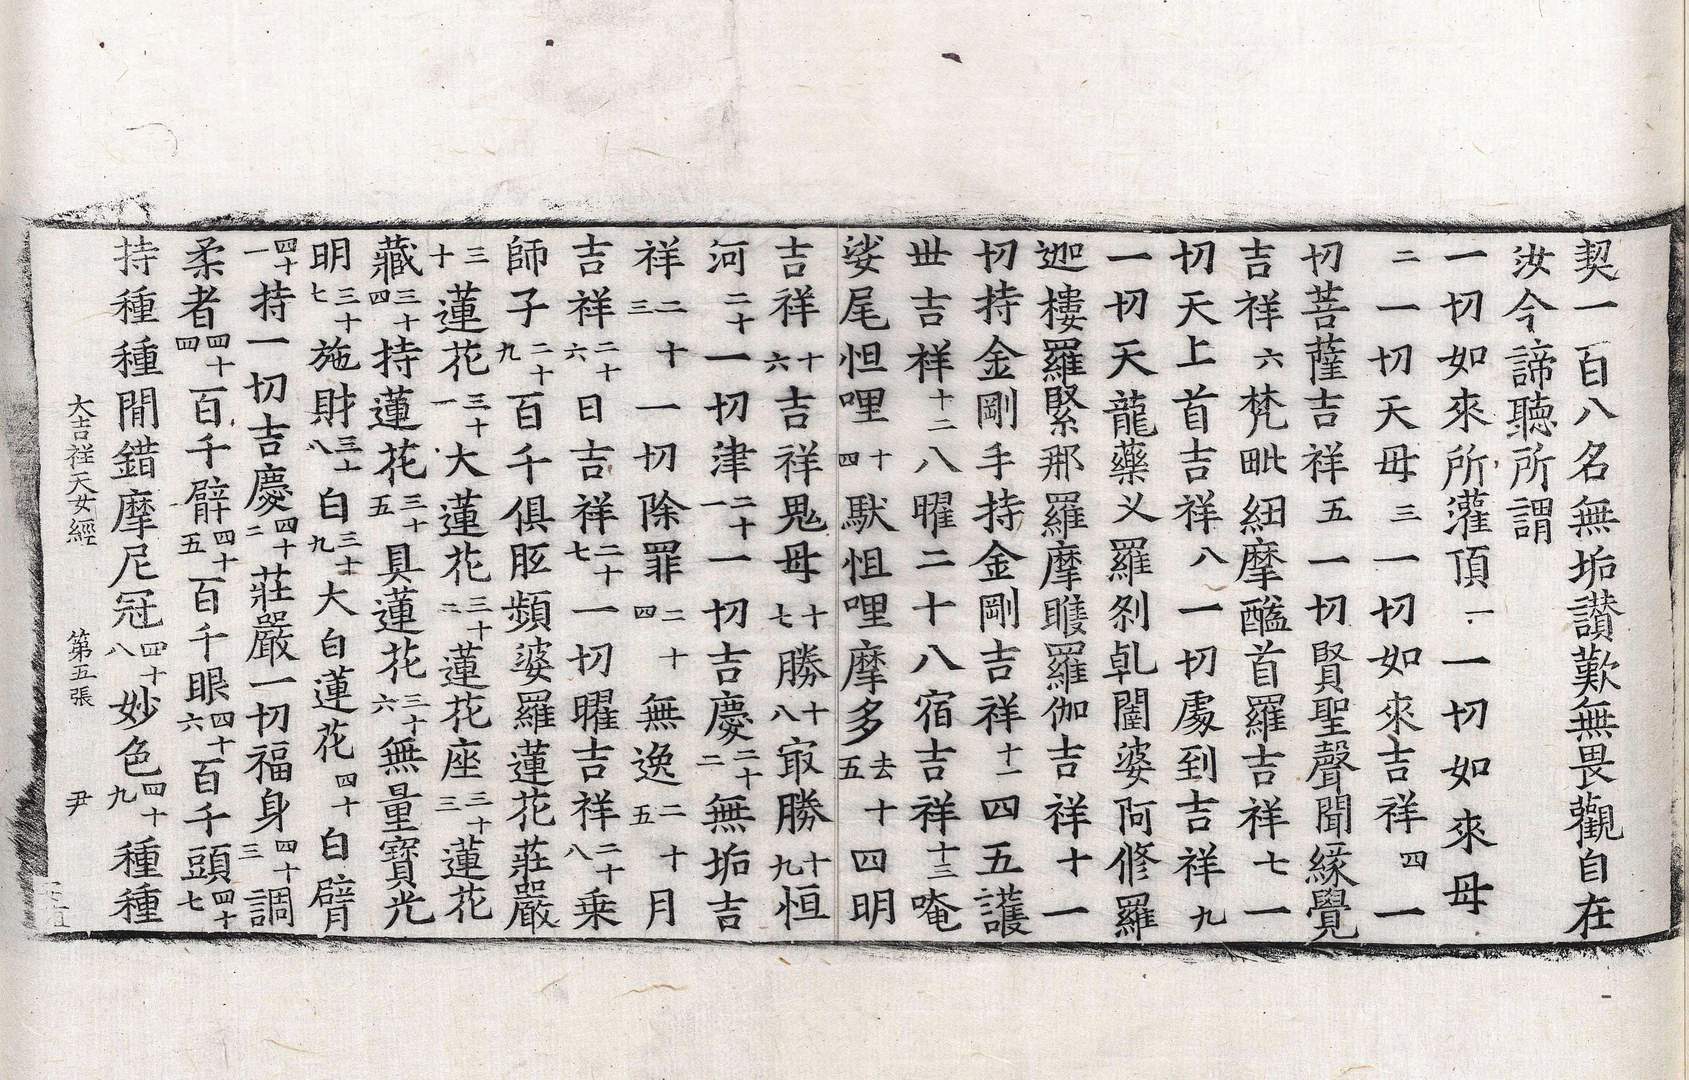 契一百八名無垢讃歎無畏觀自在
汝今諦聽所謂
一切如來所灌頂一一切如來母
二一切天母三一切如來吉祥四一
切菩薩吉祥五一切賢聖聲聞緣覺
吉祥六梵毗紐摩醯首羅吉祥七一
切天上首吉祥八一切處到吉祥九
一切天龍藥叉羅刹乹闥婆阿修羅
迦樓羅緊那羅摩睺羅伽吉祥十一
切持金剛手持金剛吉祥十一四五護
世吉祥十二八曜二十八宿吉祥十三唵
娑尾怛哩十四馱怛哩摩多去十五四明
吉祥十六吉祥鬼母十七勝十八㝡勝十九恒
河二十一切津二十一一切吉慶二十二無垢吉
祥二十三一切除罪二十四無逸二十五月
吉祥二十六日吉祥二十七一切曜吉祥二十八乗
師子二十九百千俱胝頻婆羅蓮花莊嚴
三十蓮花三十一大蓮花三十二蓮花座三十三蓮花
藏三十四持蓮花三十五具蓮花三十六無量寶光
明三十七施財三十八白三十九大白蓮花四十白臂
四十一持一切吉慶四十二莊嚴一切福身四十三調
柔者四十四百千臂四十五百千眼四十六百千頭四十七
持種種閒錯摩尼冠四十八妙色四十九種種
大吉祥天女經　第五張　尹